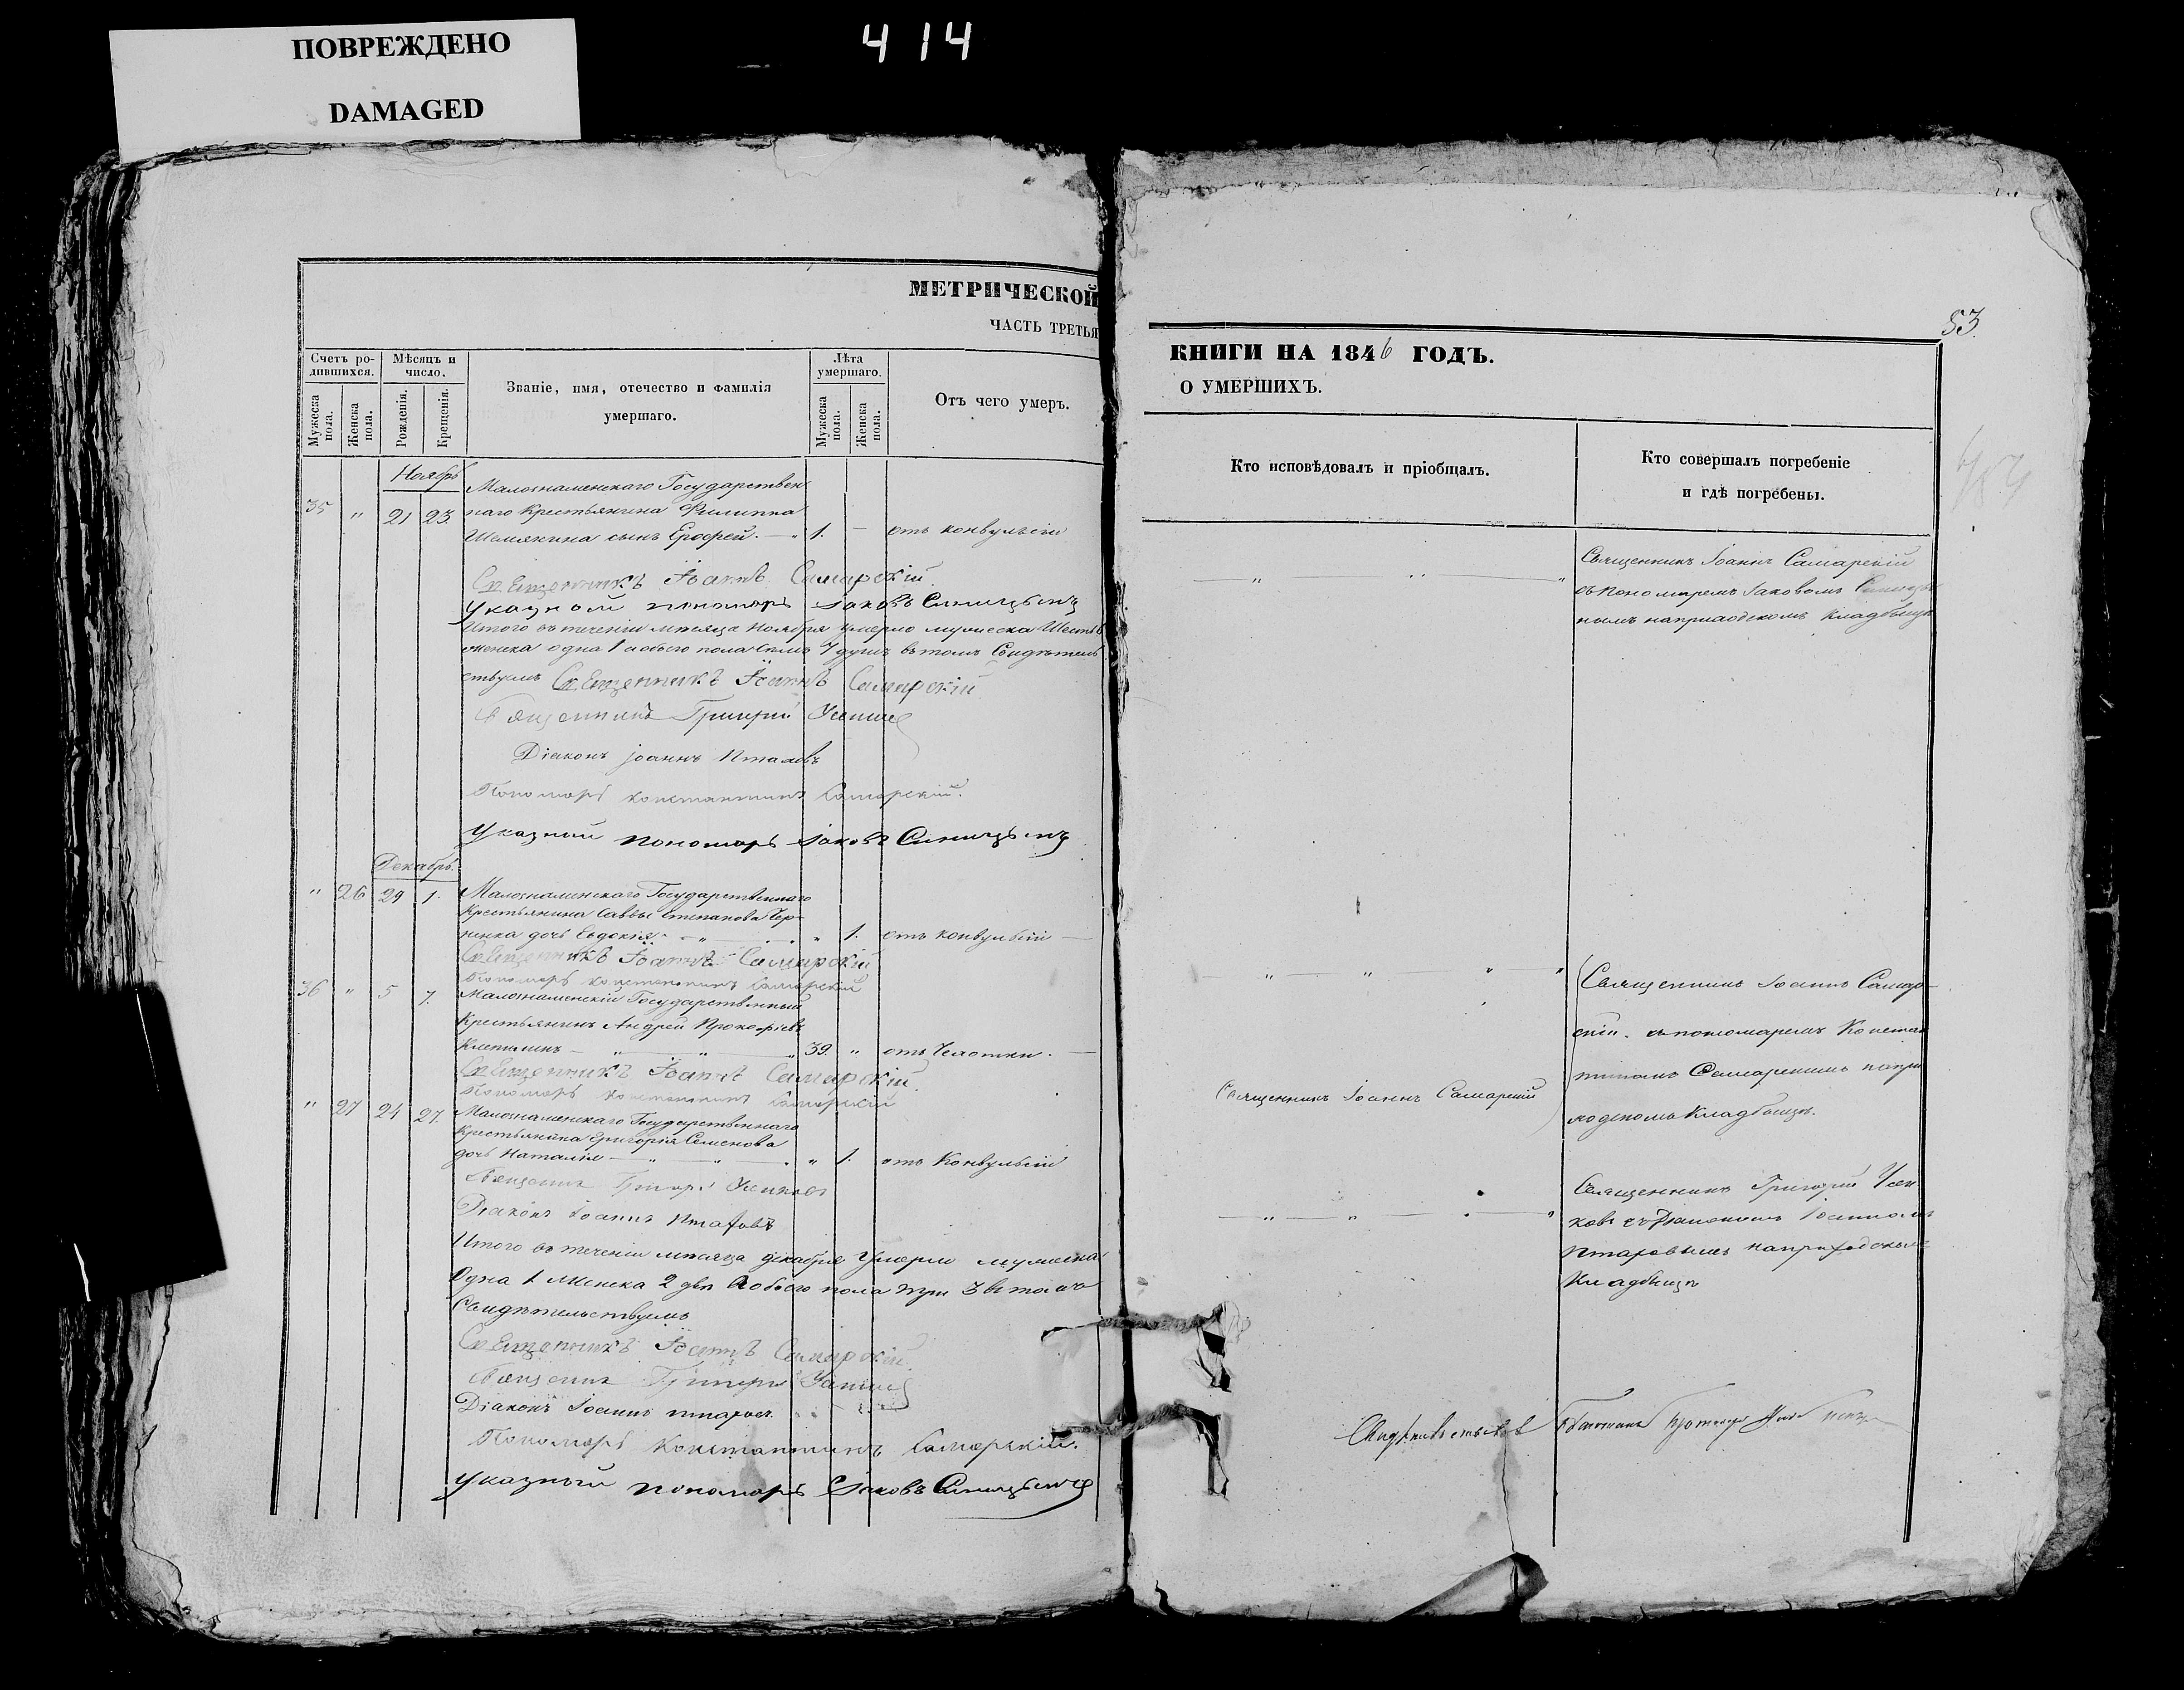 ПОВРЕЖДЕНО
DAMAGED
414
МЕТРИЧЕСКОЙ
ЧАСТЬ ТРЕТЬЯ
Счетъ ро-
дившихся.
Мѣсяцъ и
число.
Званіе, имя, отечество и фамилія
умершаго.
Лѣта
умершаго.
Отъ чего умеръ.
Мужеска
пола.
Женска
пола.
Рожденія.
Крещенія.
Мужеска
пола.
Женска
пола.
Ноябрь
Малознаменскаго Государствен
35 " 21 23. наго Крестьянина Филиппа
Шемякина сынъ Ерофей. — " 1. — отъ конвульсіи
Священникъ Іоаннъ Самарскій.
Указной пономарь Іаковъ Синицынъ
Итого въ теченіи мѣсяца Ноября умерло мужеска Шесть 6
женска одна 1 а обоего пола семь 7 душъ въ томъ Свидѣтель
ствуемъ Священникъ Іоаннъ Самарскій
Священникъ Григорій
Діаконъ Іоаннъ Птаховъ
Пономарь Константинъ Самарскій.
Указный пономарь Іаковъ Синицынъ
Декабрь.
" 26 29 1. Малознаменскаго Государственнаго
Крестьянина Саввы Степанова Чер-
ненка дочь Евдокія — " 1. отъ конвульсіи —
Священникъ Іоаннъ Самарскій
Пономарь Константинъ Самарскій
36 " 5 7. Малознаменскій Государственный
Крестьянинъ Андрей Прокофіевъ
— " — " — " 39. " отъ Чахотки. —
Священникъ Іоаннъ Самарскій
Пономарь Константинъ Самарскій
" 27 24 27. Малознаменскаго Государственнаго
Крестьянина Григорія Семенова
дочь Наталія — " — " — " 1. отъ Конвульсіи
Священникъ Григорій Усенковъ
Діаконъ Іоаннъ Птаховъ
Итого въ теченіи мѣсяца Декабря Умерли мужеска
Одна 1. Женска 2 двѣ А обоего пола три 3 въ томъ
Свидѣтельствуемъ
Священникъ Іоаннъ Самарскій.
Священникъ Григорій
Діаконъ Іоаннъ Птаховъ.
Пономарь Константинъ Самарскій.
Указный пономарь Іаковъ Синицынъ
53.
КНИГИ НА 1846 ГОДЪ.
О УМЕРШИХЪ.
Кто исповѣдовалъ и пріобщалъ.
Кто совершалъ погребеніе
и гдѣ погребены.
Священникъ Іоаннъ Самарскій
съ Пономаремъ Іаковомъ Синицы
нымъ на приходскомъ Кладбищѣ
Священникъ Іоаннъ Самар-
скій. съ пономаремъ Констан
тиномъ Самарскимъ на при
ходскомъ Кладбищѣ.
Священникъ Іоаннъ Самарскій
Священникъ Григорій Усен
ковъ съ Діакономъ Іоанномъ
Птаховымъ на приходскомъ
Кладбищѣ